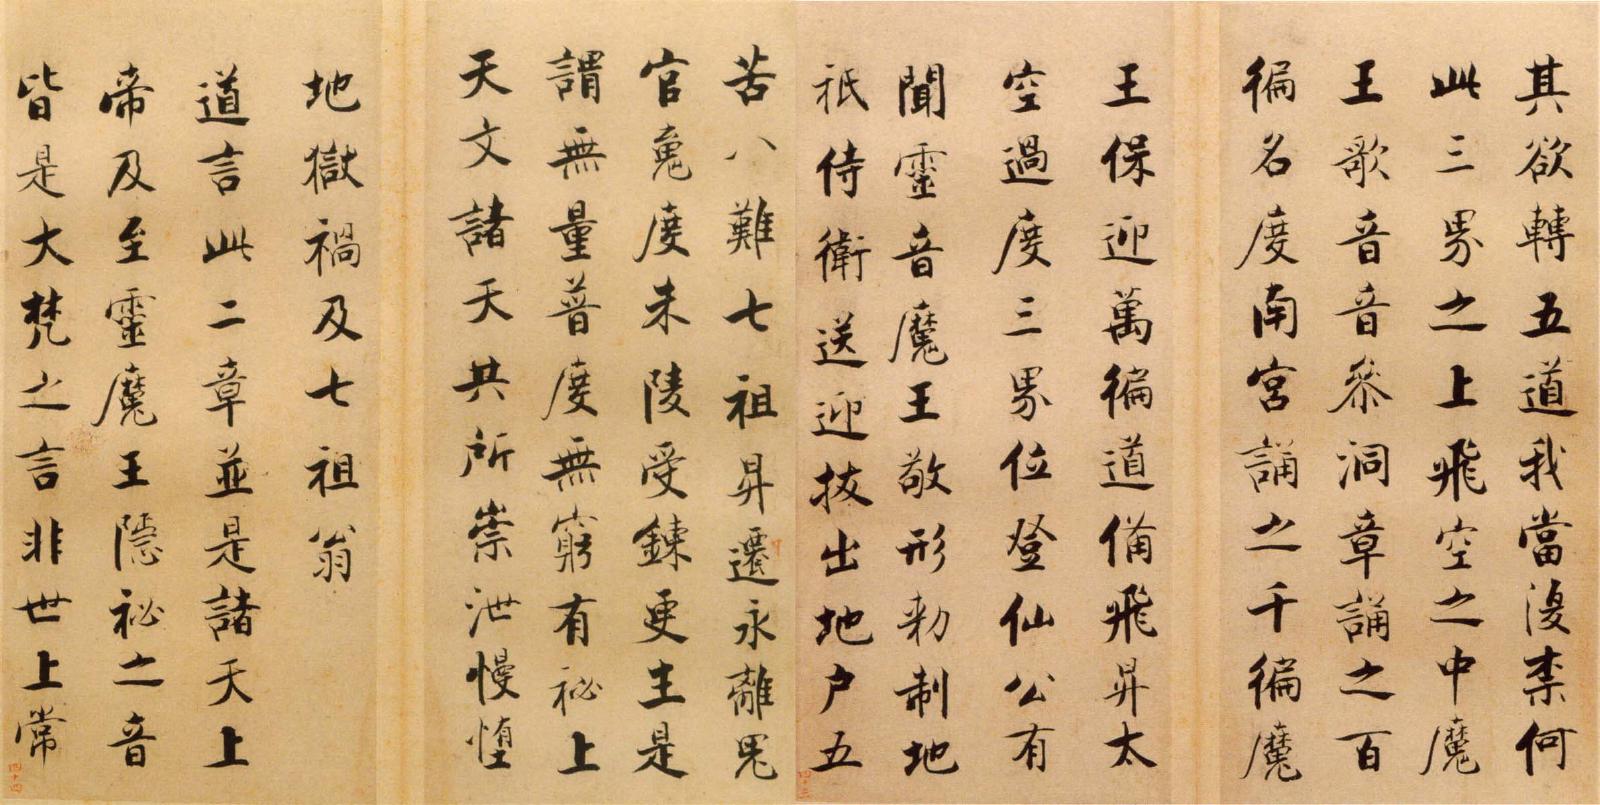 其欲轉五道我當復柰何
此三界之上飛空之中魔
王歌音音參洞章誦之百
徧名度南宮誦之千徧魔
王保迎萬徧道備飛昇太
空過度三界位登仙公有
聞靈音魔王敬形勑制地
祇侍衛送迎拔出地户五
四十三
苦八難七祖昇遷永離鬼
官魂度朱陵受鍊更生是
謂無量普度無窮有祕上
天文諸天共所崇泄慢墮
地獄禍及七祖翁
道言此二章並是諸天上
帝及至靈魔王隱祕之音
皆是大梵之言非世上常
四十四